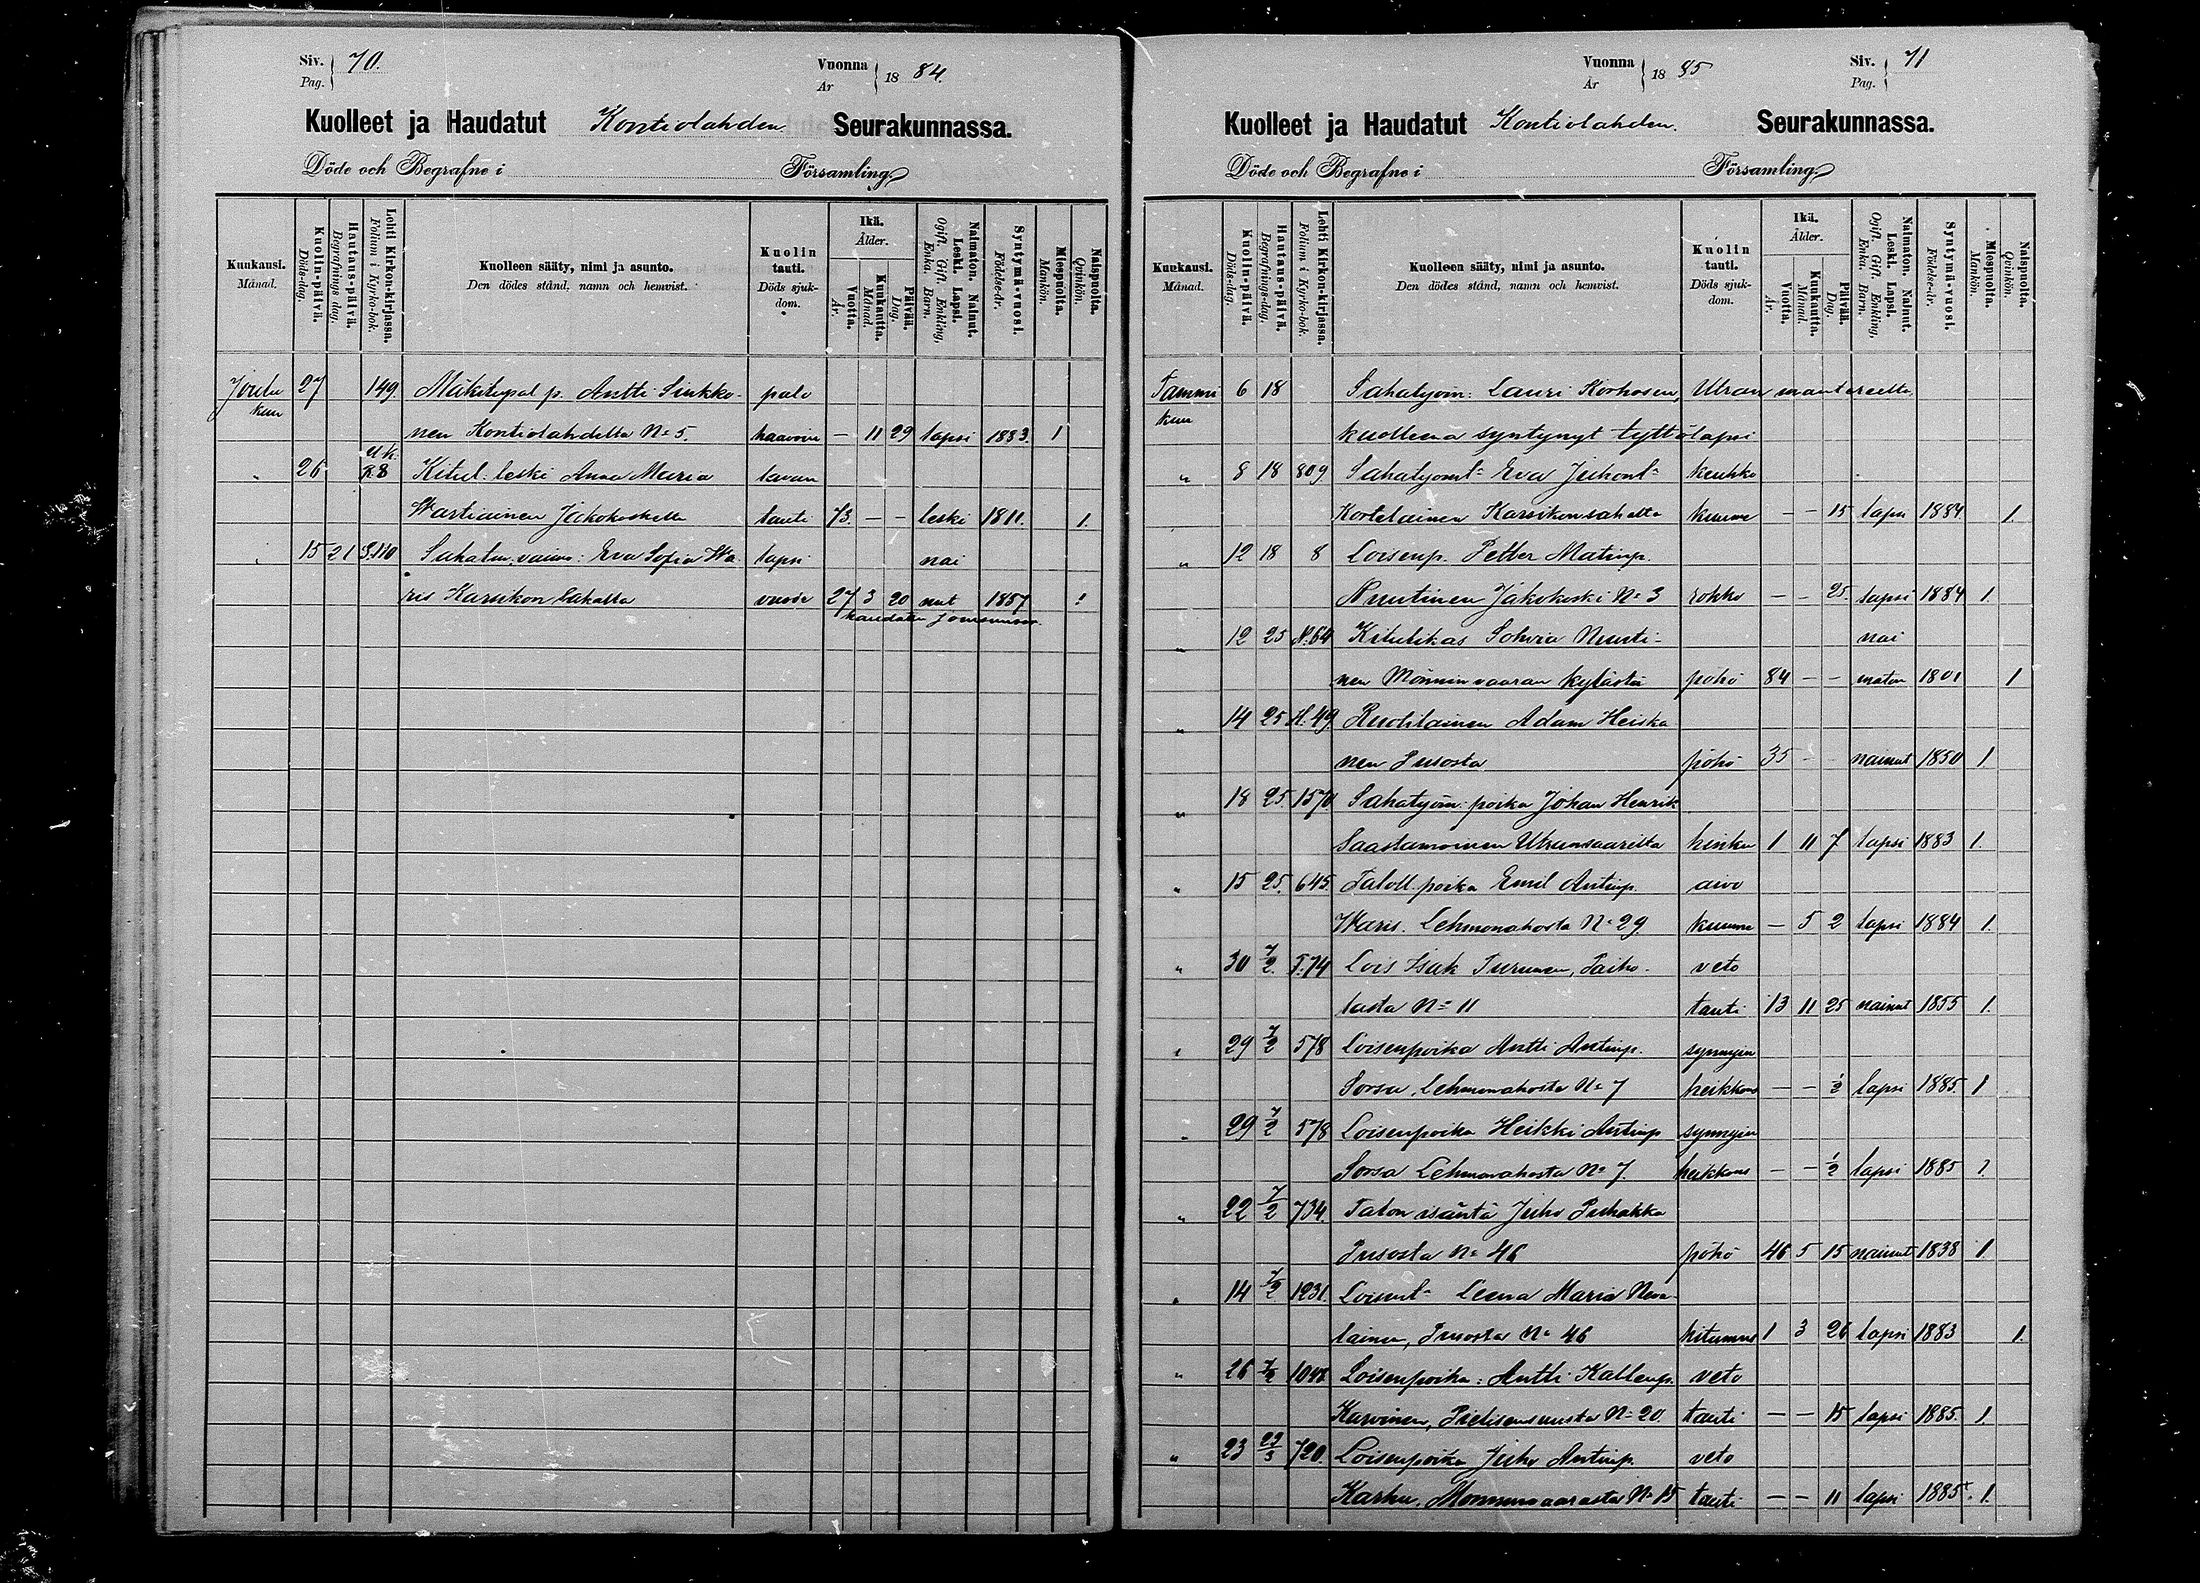 Siv. 70.
Pag.
Vuonna 1884.
År
Kuolleet ja Haudatut Kontiolahden Seurakunnassa.
Döde och Begrafne i Församling.
Kuukausi. Månad.
Kuolin-päivä. Döds-dag.
Hautaus-päivä. Begrafnings dag.
Lehti Kirkon-kirjassa. Folium i Kyrko-bok.
Kuolleen sääty, nimi ja asunto. Den dödes stånd, namn och hemvist.
Kuolin tauti. Döds sjuk-dom.
Ikä. Ålder.
Vuotta. År.
Kuukautta. Månad.
Päivää. Dag.
Naimaton. Nainut. Leski. Lapsi. Ogift. Gift. Enkling, Enka. Barn.
Syntymä-vuosi. Födelse-år.
Miespuolta. Mankön.
Naispuolta. Qvinkön.
Joulu 27 149 Mäkitupal p. Antti Sinkko- palo
kuu nen Kontiolahdelta No 5. haavoin — 11 29 lapsi 1883. 1
" 26 Kitul. leski Anna Maria tavan
Wartiainen Jakokoskelta tauti 73 — — leski 1811. 1.
" 15 21 S.110 Sahatm. vaimo: Eva Sofia Wa- lapsi nai
ris Karsikon Sahalta vuode 27 3 20 nut 1857
haudattu Joensuussa.
Siv. 71
Pag.
Vuonna 1885
År
Kuolleet ja Haudatut Kontiolahden. Seurakunnassa.
Döde och Begrafne i Församling.
Kuukausi. Månad.
Kuolin-päivä. Döds-dag.
Hautaus-päivä. Begrafnings-dag.
Lehti Kirkon-kirjassa. Folium i Kyrko-bok.
Kuolleen sääty, nimi ja asunto. Den dödes stånd, namn och hemvist.
Kuolin tauti. Döds sjuk-dom.
Ikä. Ålder.
Vuotta. År.
Kuukautta. Månad.
Päivää. Dag.
Naimaton. Nainut. Leski. Lapsi. Ogift. Gift. Enkling, Enka. Barn.
Syntymä-vuosi. Födelse-år.
Miespuolta. Mankön.
Naispuolta. Qvinkön.
Tammi 6 18 Sahatyöm: Lauri Korhosen, Utran mantereelta
kuu kuolleena syntynyt tyttölapsi
" 8 18 809 Sahatyömt. Eva Juhont. keuhko
Kortelainen Karsikonsahalta kuume — — 15 lapsi 1884 1.
" 12 18 8 Loisenp. Petter Matinp.
Nuutinen Jakokoski No 3 rokko — — 25. lapsi 1884 1.
" 12 25 N.64 Kitulikas Sohvia Nuuti- nai
nen Mönninvaaran kylästä pöhö 84 — — maton 1801 1
" 14 25 H.49 Ruotilainen Adam Heiska
nen Pusosta pöhö 35 — nainut 1850 1
" 18 25. 1570 Sahatyöm: poika Johan Henrik
Saastamoinen Utransaarelta hinku 1 11 7 lapsi 1883 1.
" 15 25. 645. Taloll. poika Emil Antinp. aivo
Waris. Lehmonahosta No 29 kuume — 5 2 lapsi 1884 1.
" 30 7/2. T.74 Lois Isak Turunen, Paiho- veto
lasta No 11 tauti 13 11 25 nainut 1855 1.
" 29 7/2 578 Loisenpoika Antti Antinp. synnyin
Sorsa, Lehmonahosta No 7 heikkous — — 1/2 lapsi 1885. 1
" 29 7/2 578 Loisenpoika Heikki Antinp synnyin
Sorsa Lehmonahosta No 7. heikkous — — 1/2 lapsi 1885
" 22 7/2 734. Talon isäntä Juho Puhakka
Pusosta No 46 pöhö 46 5 15 nainut 1838 1
" 14 7/2 1231. Loisent. Leena Maria Neva-
lainen, Pusosta No 46 kitumus 1 3 26 lapsi 1883 1.
" 26 7/2 Loisenpoika: Antti Kallenp. veto
Karvinen, Pielisensuusta No 20 tauti — — 15 lapsi 1885. 1.
" 23 22/3 720. Loisenpoika Juho Antinp. veto
Karhu, Mönninvaarasta No 15 tauti — — 11 lapsi 1885. 1.